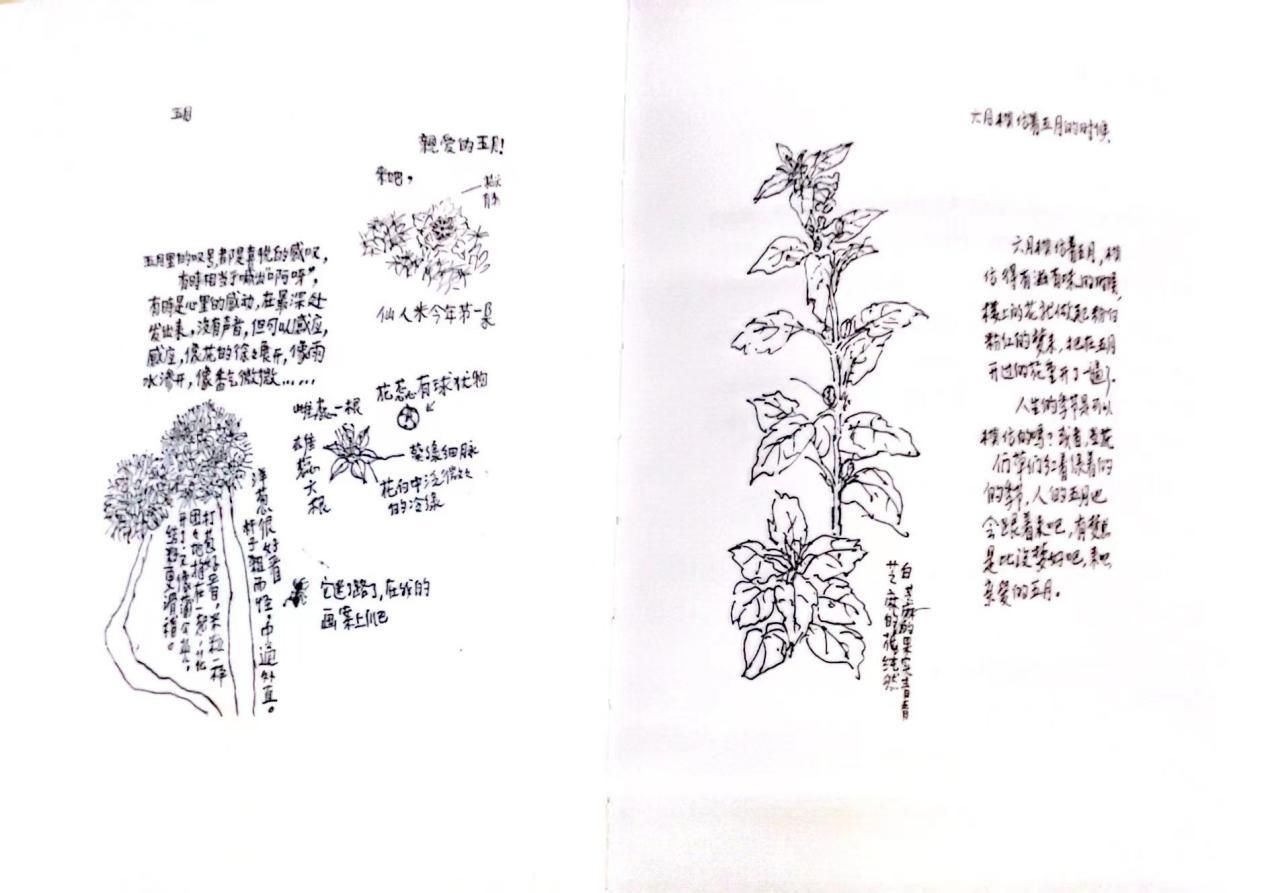 五月
親爱的五月!
来吧,
五月里的叹号都是真悦的感叹,
有時相当于喊出“啊呀”,
有時是心里的感动,在最深处
发出来,没有声音,但可以感应,
感应,像花的徐徐展开,像雨
水渗开,像香气微微……
仙人
今年第一朵
花蕊有球状物
雌蕊一根
雄蕊六根
葵绿细脉
花白中泛微微
的冷绿
洋葱很好看
杆子粗而怪,中通外直。
打苞好看,米粒一样
团团地挤在一起,花
开了又像蒲公英,
它迷了路了,在我的
画案上爬
六月模仿着五月的时候
六月模仿着五月,模
仿得有滋有味的时候,
樓上的花就做起粉白
粉红的梦来,把在五月
开过的花重开了一遍了。
人生的季节是可以
模仿的吗?或者,是花
们草们红着绿着的
的季节,人的五月也
会跟着来吧,有梦总
是比没梦好吧,来吧
亲爱的五月。
白芝麻的果实青青
芝麻的花纯然